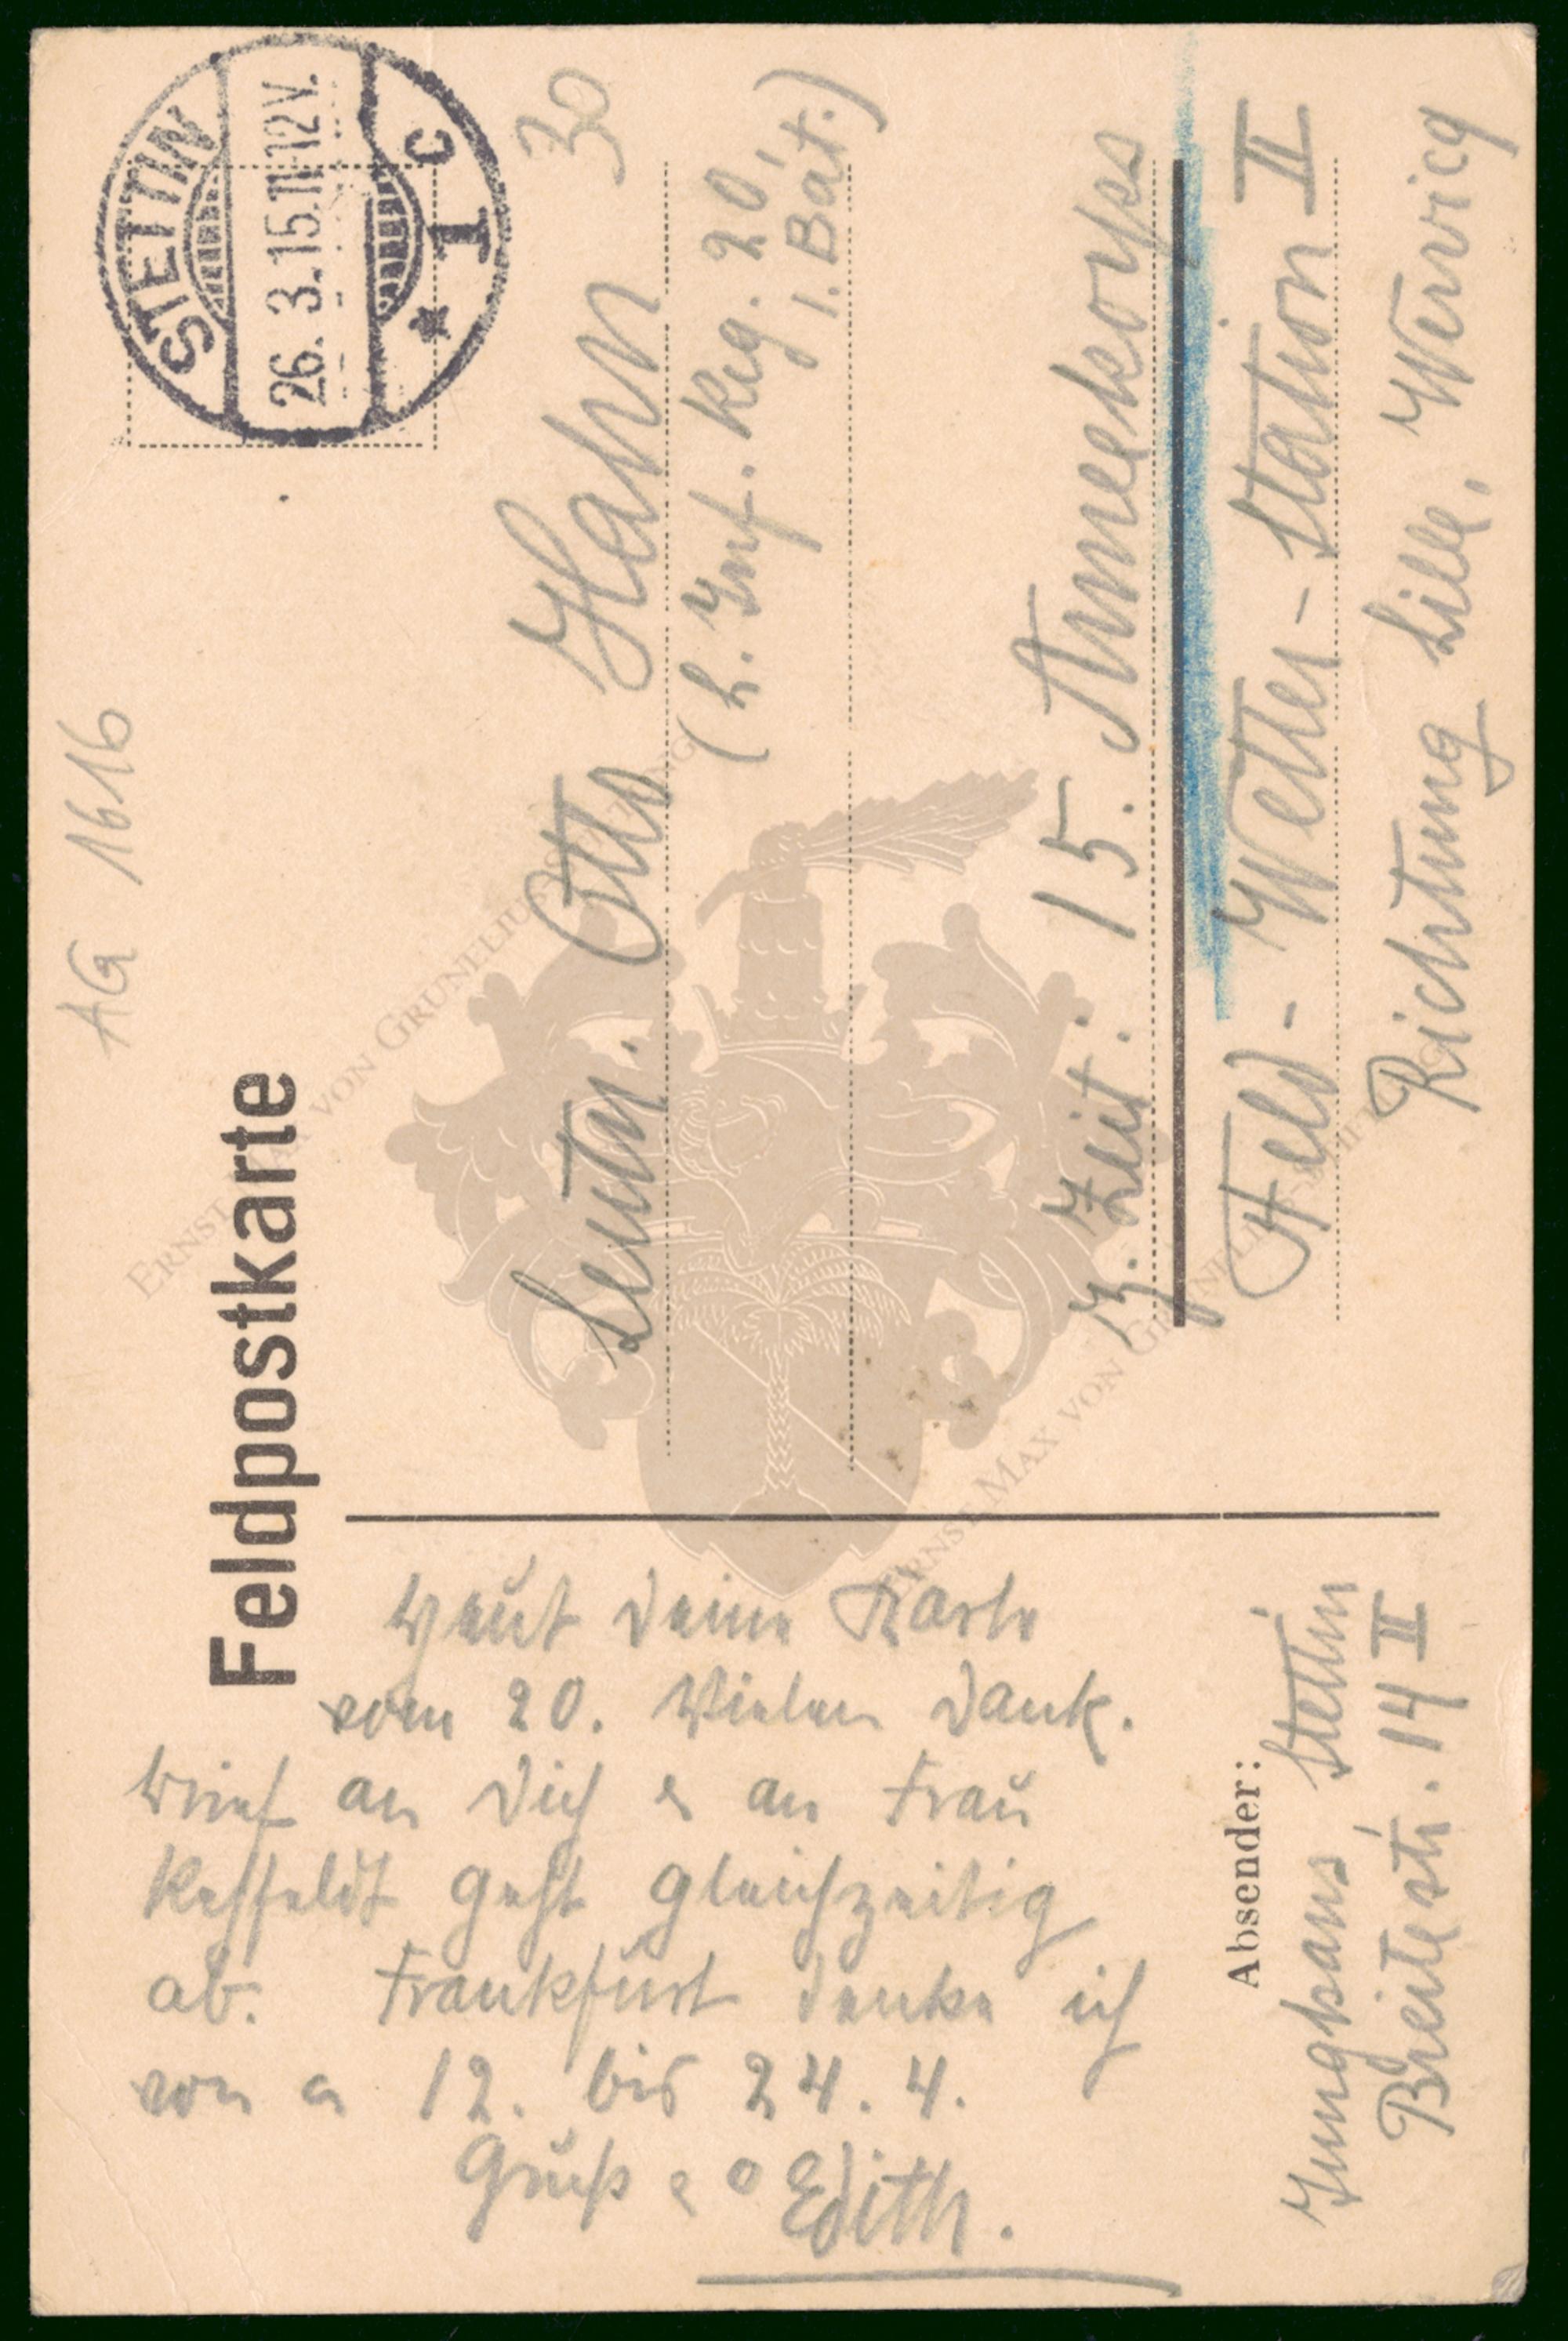 Feldpostkarte
AG 1616
STETTIN
26. 3. 15. 11-12 V.
* 1 c
30
Leutn. Otto Hahn
(L. Inf. Reg. 20,
1. Bat.)
z. Zeit: 15. Armeekorps
Feld-Wetter-Station II
Richtung Lille, Wervicq
Heut deine Karte
vom 20. Vielen Dank.
Brief an Dich & an Frau
geht gleichzeitig
ab. Frankfurt denke ich
von a 12. bis 24. 4.
Gruß & o Edith.
Absender:
Junghans, Stettin
Breitestr. 14 II
ERNST MAX VON GRUNELIUS-STIFTUNG
ERNST MAX VON GRUNELIUS-STIFTUNG